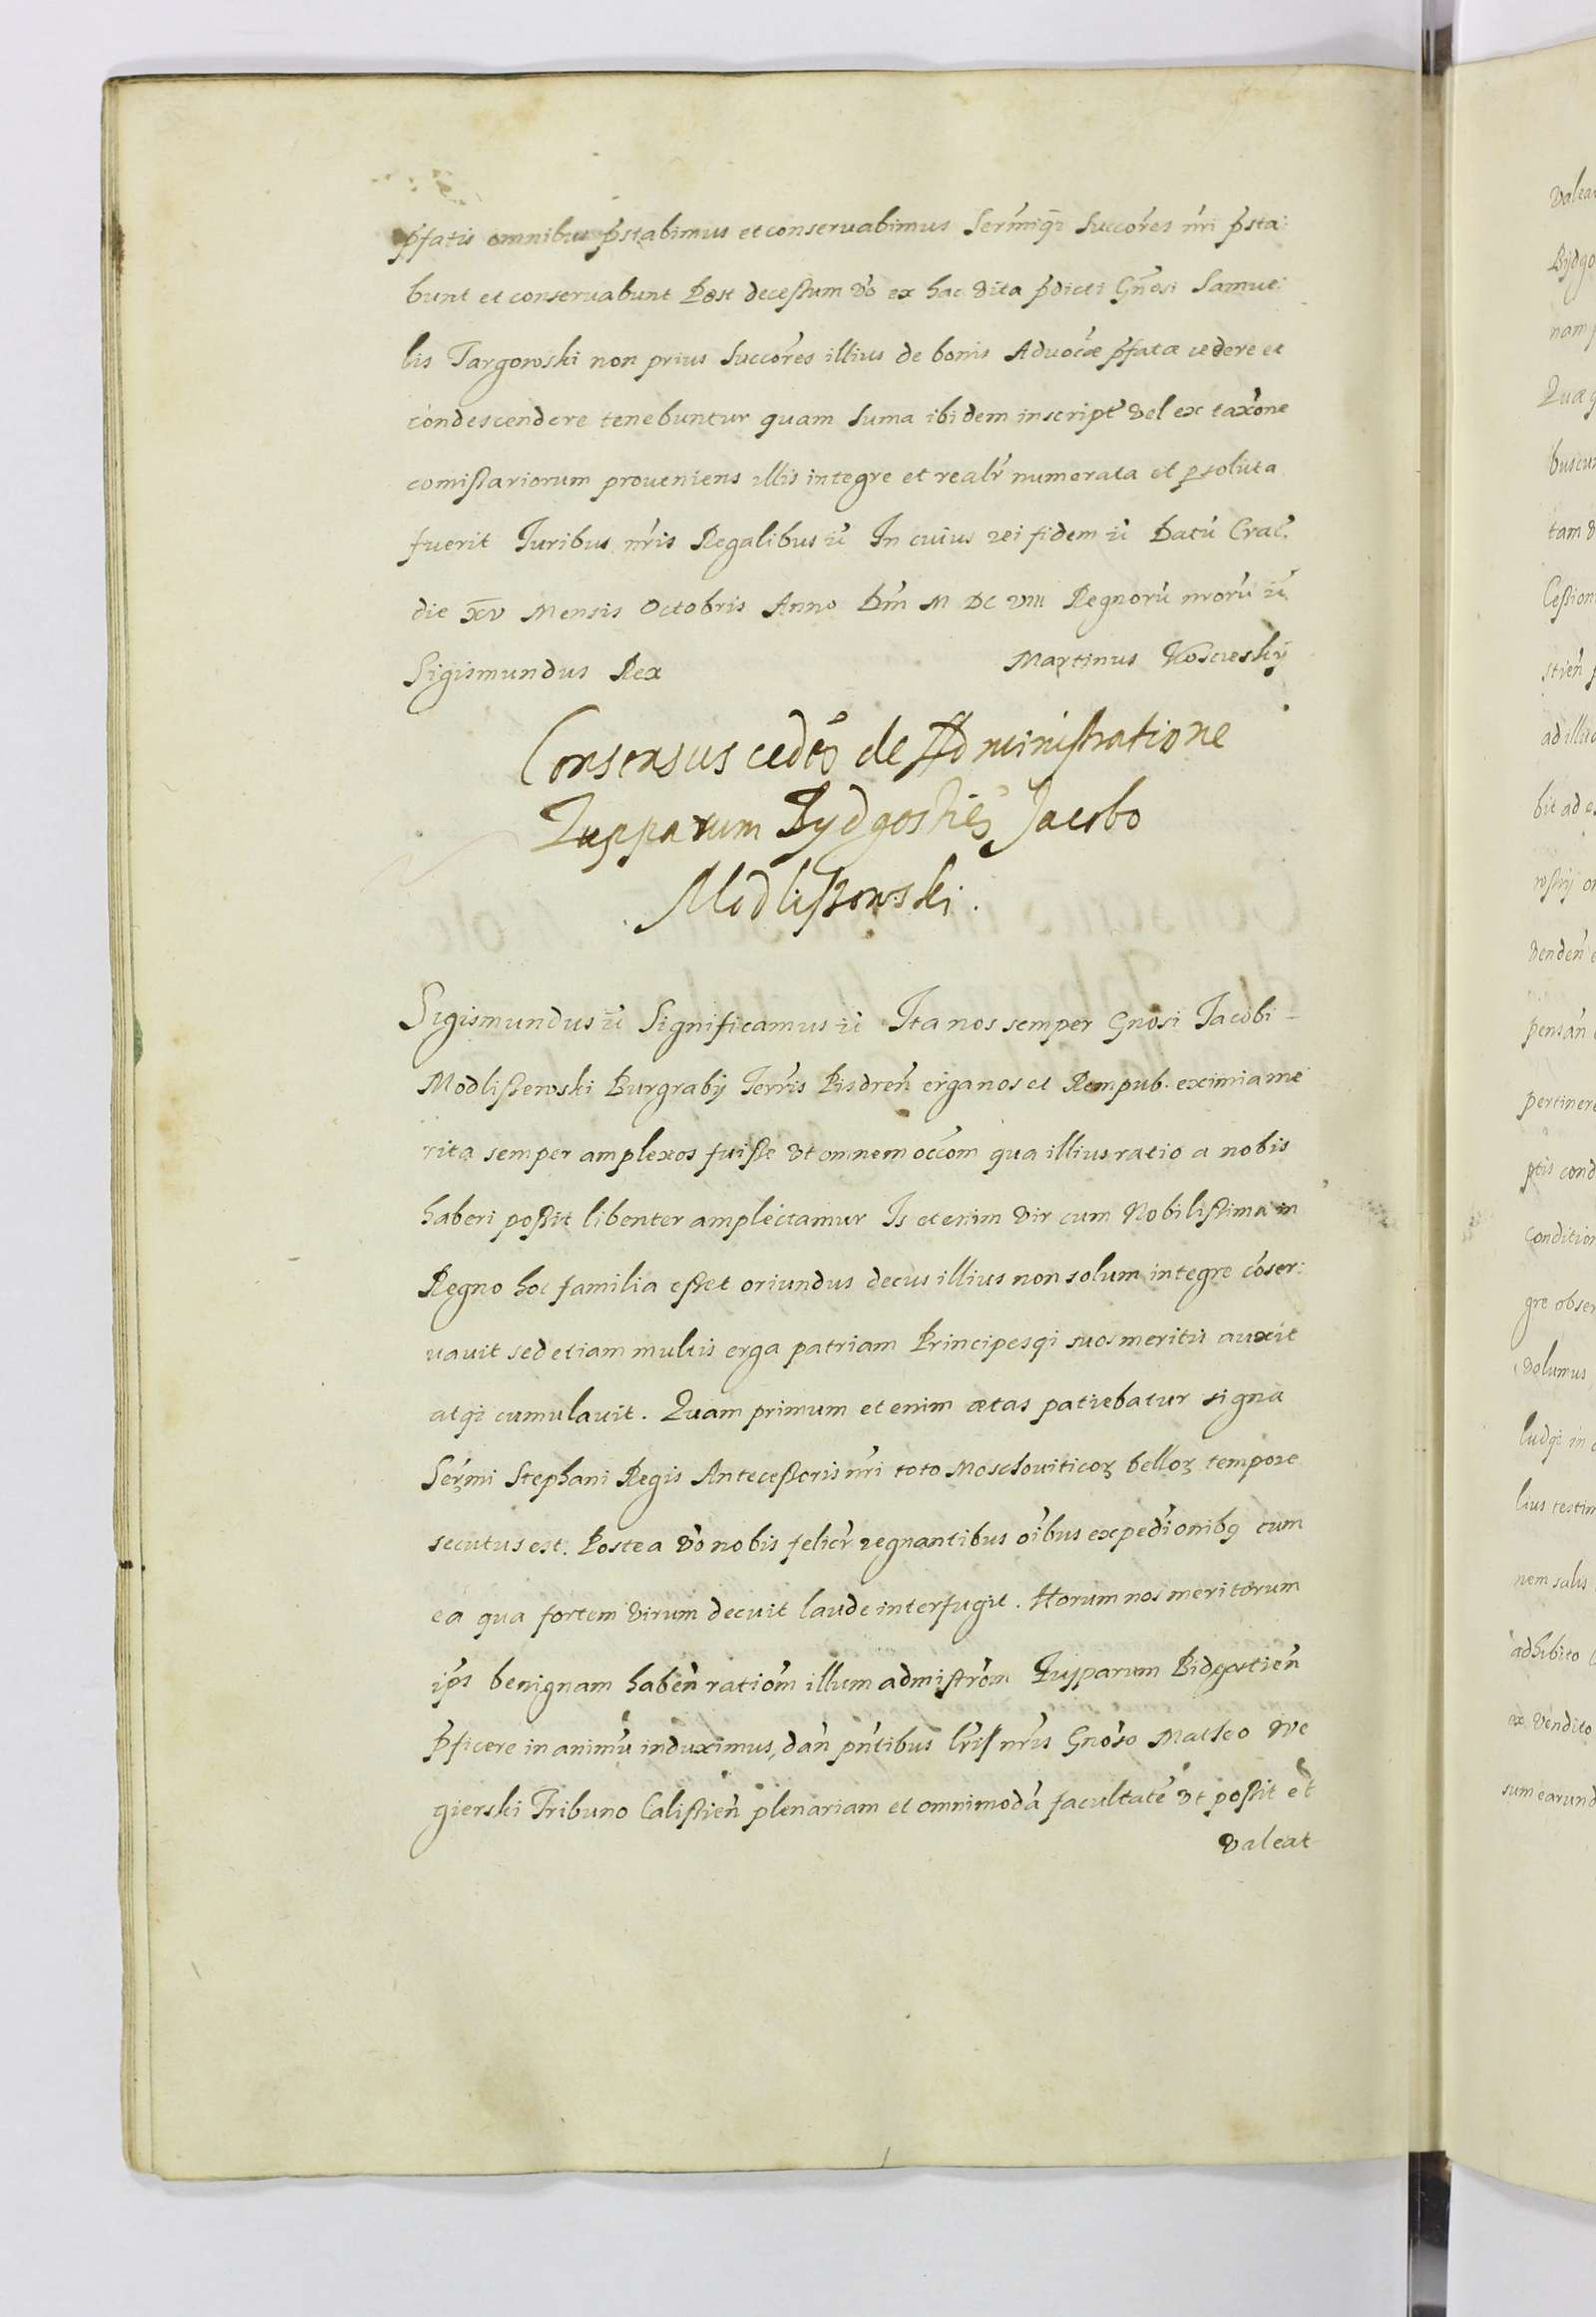 p̄fatis omnibus p̄stabimus et conseruabimus Serm̄iq̃ Succor̃es nr̃i p̄sta:
bunt et conseruabunt Post decessum v̊o ex hac vita p̄dicti Gñosi Samue:
lis Targowski non prius Succor̃es illius de bonis Aduoc̃æ p̄fatæ cedere et
condescendere tenebuntur quam suma ibidem inscript̃ vel ex tax̃one
comissariorum proueniens illis integre et realr̃ numerata et ꝑsoluta
fuerit Juribus nr̃is Regalibus ẽt In cuius rei fidem ẽt Datũ Crac̃.
die xv Mensis Octobris Anno Dm̃ M DC VIII Regnorũ nrorũ ẽt
Sigismundus Rex Martinus Kosciesky
Consensus ced̃ẽ de Administratione
Zupparum Bydgostiẽ Jacobo
Modliszowski.
Sigismundus ẽt Significamus ẽt Ita nos semper Gnõsi Jacobi
Modliszewski Burgrabÿ Terr̃is Pisdreñ erga nos et Rempub. eximia me
rita semper amplexos fuisse vt omnem occ̃om qua illius ratio a nobis
haberi possit libenter amplectamur Is etenim vir cum Nobilissima in
Regno hoc familia esset oriundus decus illius non solum integre cõser:
uauit sed etiam multis erga patriam Principesq̃ suos meritis auxit
atq̃ cumulauit. Quam primum etenim ætas patiebatur signa
Ser̃mi Stephani Regis Antecessoris nr̃i toto Moschouiticoꝝ belloꝝ tempore
secutus est. Postea v̊o nobis felicr̃ regnantibus oĩbus expedĩonibꝫ cum
ea qua fortem virum decuit laude interfugit. Horum nos meritorum
ip̃s benignam habeñ ratiom̃ illum admistrõm Zupparum Bidgostieñ
p̄ficere in animũ induximus, dañ pñtibus lr̃is nr̃is Gnõso Matheo We
gierski Tribuno Calissieñ plenariam et omnimodã facultatẽ vt possit et
valeat